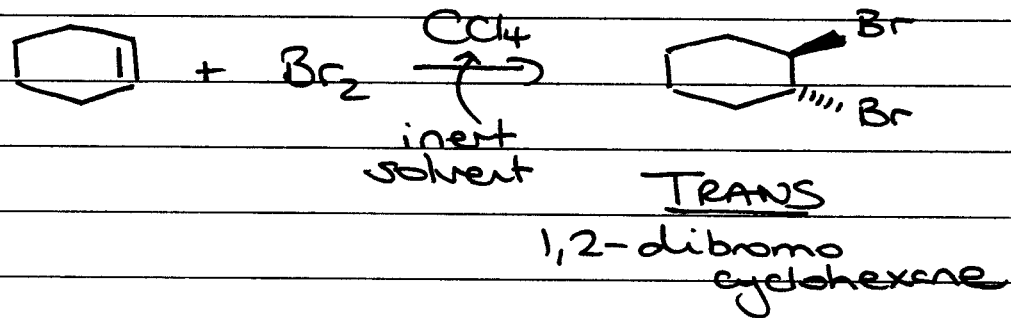 CCl4
Br
+ Br2
Br
inert
solvent
TRANS
1,2-dibromo
cyclohexane